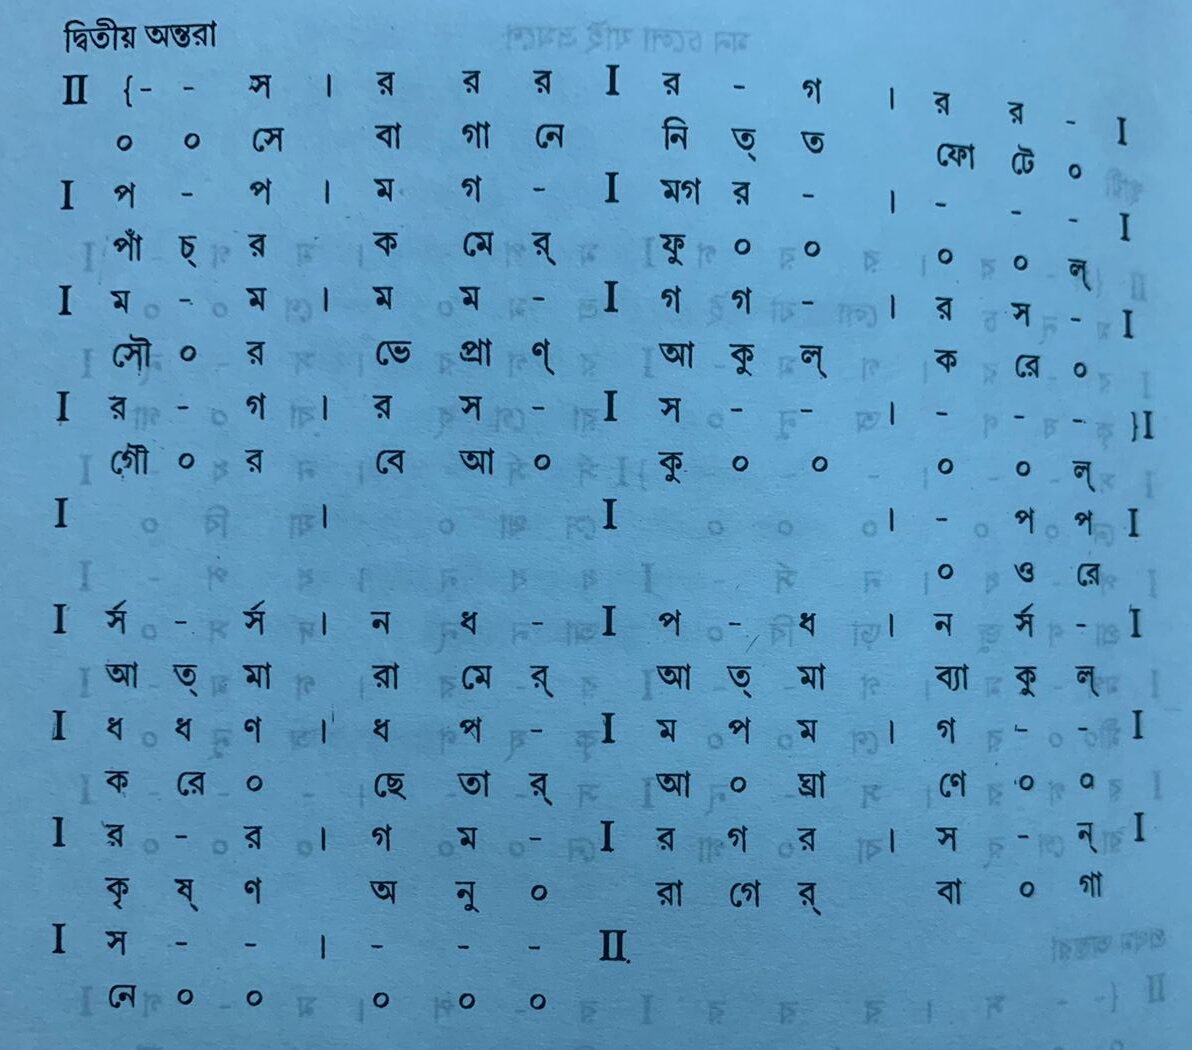 দ্বিতীয় অন্তরা
II {- - স | র র র I র - গ | র র - I
০ ০ সে বা গা নে নি ত্ ত ফো টে ০
I প - প | ম গ - I মগ র - | - - - I
পাঁ চ্ র ক মে র্ ফু ০ ০ ০ ০ ল্
I ম - ম | ম ম - I গ গ - | র স - I
সৌ ০ র ভে প্রা ণ্ আ কু ল্ ক রে ০
I র - গ | র স - I স - - | - - - }I
গৌ ০ র বে আ ০ কু ০ ০ ০ ০ ল্
I | I | - প প I
০ ও রে
I র্স - র্স | ন ধ - I প - ধ | ন র্স - I
আ ত্ মা রা মে র্ আ ত্ মা ব্যা কু ল্
I ধ ধ ণ | ধ প - I ম প ম | গ - - I
ক রে ০ ছে তা র্ আ ০ ঘ্রা ণে ০ ০
I র - র | গ ম - I র গ র | স - ন্ I
কৃ ষ্ ণ অ নু ০ রা গে র্ বা ০ গা
I স - - | - - - II
নে ০ ০ ০ ০ ০